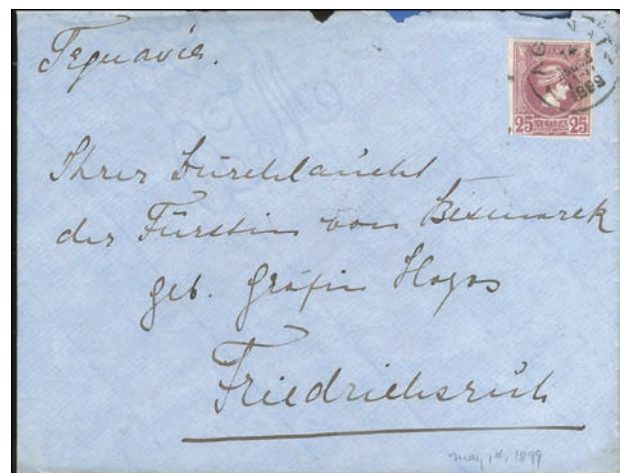 Γερμανία.
Ihrer Durchlaucht
der Fürstin von Bismarck
geb. Gräfin Hoyos
Friedrichsruh
25 25
1899
may 1st, 1899